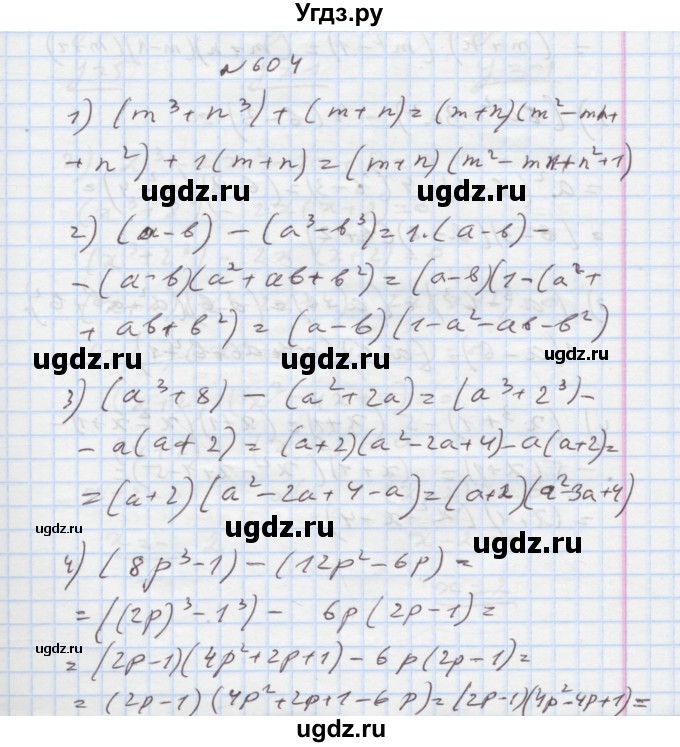 Угдз.ру
№604
1) (m³+n³)+(m+n)=(m+n)(m²-mn+
+n²)+1(m+n)=(m+n)(m²-mn+n²+1)
ugdz.ru ugdz.ru
2) (a-b)-(a³-b³)=1·(a-b)-
-(a-b)(a²+ab+b²)=(a-b)(1-(a²+
+ab+b²)=(a-b)(1-a²-ab-b²)
ugdz.ru ugdz.ru ugdz.ru
3) (a³+8)-(a²+2a)=(a³+2³)-
-a(a+2)=(a+2)(a²-2a+4)-a(a+2)=
=(a+2)(a²-2a+4-a)=(a+2)(a²-3a+4)
ugdz.ru ugdz.ru ugdz.ru
4) (8p³-1)-(12p²-6p)=
=((2p)³-1³)- 6p(2p-1)=
=(2p-1)(4p²+2p+1)-6p(2p-1)=
ugdz.ru
=(2p-1)(4p²+2p+1-6p)=(2p-1)(4p²-4p+1)=
ugdz.ru